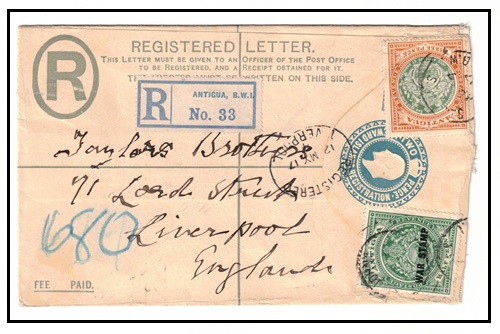 REGISTERED LETTER.
THIS LETTER MUST BE GIVEN TO AN OFFICER OF THE POST OFFICE
TO BE REGISTERED, AND A RECEIPT OBTAINED FOR IT.
THE ADDRESS MUST BE WRITTEN ON THIS SIDE.
R
R
ANTIGUA, B.W.I.
No. 33
ANTIGUA
REGISTERED
12 MY 17
LIVERPOOL
TWO PENCE
REGISTRATION
Taylors Brothers
71 Lord Street
Liverpool
England
680
WAR STAMP
FEE PAID.